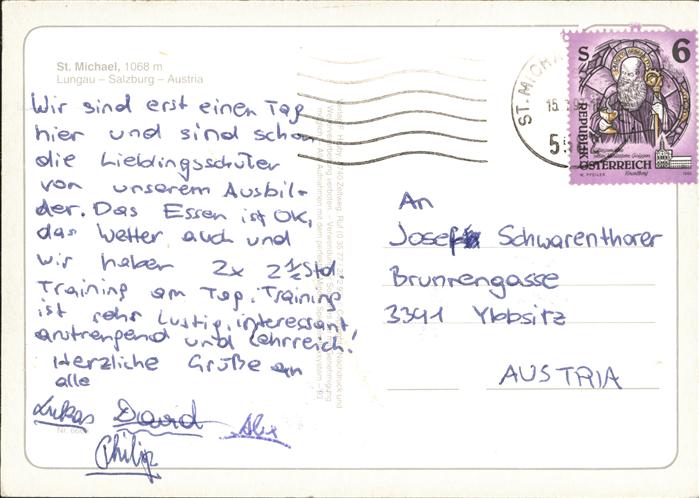 St. Michael, 1068 m
Lungau – Salzburg – Austria
Wir sind erst einen Tag
hier und sind schon
die Lieblingsschüler
von unserem Ausbil-
der. Das Essen ist OK,
das Wetter auch und
wir haben 2x 2½ Std.
Training am Tag. Training
ist sehr lustig, interessant
anstrengend und lehrreich!
Herzliche Grüße an
alle
Lukas David Alex
Philip
An
Josef Schwarenthorer
Brunnengasse
3341 Ybbsitz
AUSTRIA
S 6
REPUBLIK
ÖSTERREICH
W. PFEILER
ST. MICHA
15